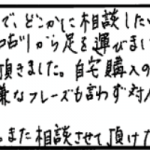 で、どこかに相談したい
から足を運びまし
頂きました。自宅購入の
嫌なフレーズも言わず対人
。また相談させて頂けた